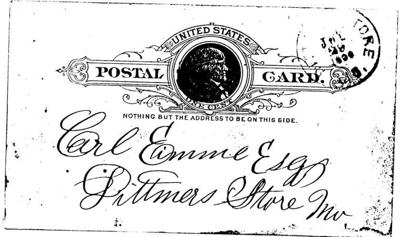 UNITED STATES
POSTAL CARD.
ONE CENT
NOTHING BUT THE ADDRESS TO BE ON THIS SIDE.
Carl Eimme Esq
Dittmers Store Mo
STORE